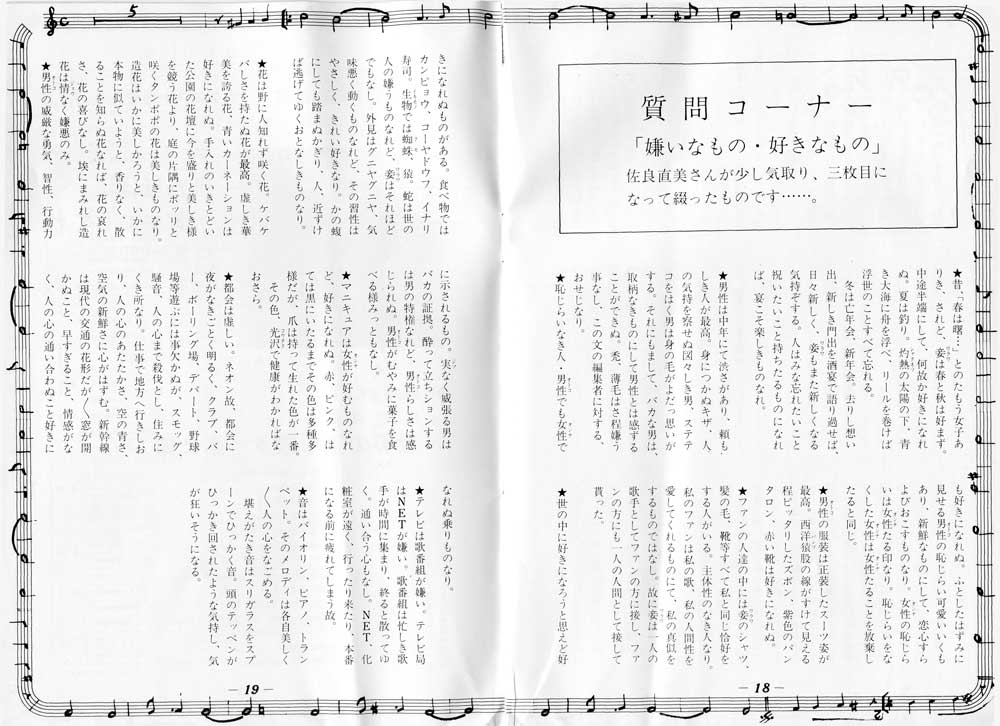 質問コーナー
「嫌いなもの・好きなもの」
佐良直美さんが少し気取り、三枚目に
なって綴ったものです……。
★昔「春は曙…」とのたもう女子あ
りき、されど、妾は春と秋は好まず。
中途半端にして、何故か好きになれ
ぬ。夏は釣り。灼熱の太陽の下、青
き大海に舟を浮べ、リールを巻けば
浮世のことすべて忘れる。
冬は亡年会、新年会。去りし想い
出、新しき門出を酒宴で語り過せば、
日々新しく、妾もまた新しくなる
気持ぞする。人はみな忘れたいこと
祝いたいこと持ちたるものになれ
ば、宴こそ楽しきものなれ。
★男性は中年にて渋さがあり、頼も
しき人が最高。身につかぬキザ、人
の気持を察せぬ図々しき男、ステテ
コをはく男は身の毛がよだっ思いが
する。それにもまして、バカな男は、
取柄なきものにして男性とは感する
ことができぬ。禿、薄毛はさ程嫌う
事なし、この文の編集者に対する、
お世じなり。
★恥じらいなき人・男性でも女性で
も好きになれぬ。ふとしたはずみに
見せる男性の恥じらい可愛いいくも
あり、新鮮なものにして、恋心すら
よびおこすものなり。女性の恥じら
いは女性たる印なり。恥じらいをな
くした女性は女性たることを放棄し
たると同じ。
★男性の服装は正装したスーツ姿が
最高。西洋猿股の線がすけて見える
程ピッタリしたズボン、紫色のパン
タロン、赤い靴は好きになれぬ。
★ファンの人達の中には妾のシャツ、
髪の毛、靴等すべて私と同じ恰好を
する人がいる。主体性のなき人なり。
私のファンは私の歌、私の人間性を
愛してくれるものにて、私の真似を
するものではなし。故に妾は一人の
歌手としてファンの方に接し、ファ
ンの方にも一人の人間として接して
貰った。
★世の中に好きになろうと思えど好
きになれぬものがある。食べ物では
カンピョウ、コーヤドウフ、イナリ
寿司。生物では蜘蛛、猿。蛇は世の
人の嫌うものなれど、妾はそれほど
でもなし。外見はグニヤグニヤ、気
味悪く動くものなれど、その習性は
やさしく、きれい好きなり。かの蝮
にしても踏まぬかぎり、人、近ずけ
ば逃げてゆくおとなしきものなり。
★花は野に人知れず咲く花。ケバケ
バしさを持たぬ花が最高。虚しき華
美を誇る花、青いカーネーションは
好きになれぬ。手入れのいきとどい
た公園の花壇に今を盛りと美しき様
を競う花より、庭の片隅にポッリと
咲くタンポポの花は美しきものなり。
造花はいかに美しかろうと、いかに
本物に似ていようと、香りなく、散
ることを知らぬ花なれば、花の哀れ
さ、花の喜びなし。埃にまみれし造
花は情なく嫌悪のみ。
★男性の威厳な勇気、智性、行動力
に示されるもの。実なく威張る男は
バカの証拠。酔って立ちションする
は男の特権なれど、男性らしさは感
じられぬ。男性がむやみに菓子を食
べる様みっともなし。
★マニキュアは女性が好むものなれ
ど、好きになれぬ。赤、ピンク、は
ては黒にいたるまでその色は多種多
様だが、爪は持って生れた色が一番。
その色、光沢で健康がわかればな
おさら。
★都会は虚しい。ネオン故、都会に
夜がなきごとく明るく、クラブ、バ
ー、ボーリング場、デパート、野球
場等遊ぶには事欠かぬが、スモッグ、
騒音、人の心まで殺伐とし、住みに
くき所なり。仕事で地方へ行きしお
り、人の心のあたたかさ、空の青さ、
空気の新鮮さに心がはずむ。新幹線
は現代の交通の花形だが〱窓が開
かぬこと、早すぎること、情感がな
く、人の心の通い合わぬこと好きに
なれぬ乗りものなり。
★テレビは歌番組が嫌い。テレビ局
はNETが嫌い。歌番組は忙しき歌
手が時間に集まり、終ると散ってゆ
く。通い合う心もなし。NET、化
粧室が遠く、行ったり来たり、本番
になる前に疲れてしまう故。
★音はバイオリン、ピアノ、トラン
ペット。そのメロディは各自美しく
〱人の心をなごめる。
堪えがたき音はスリガラスをスプ
ーンでひっかく音。頭のテッペンが
ひっつき回されたような気持し、気
が狂いそうになる。
—18—
—19—
5